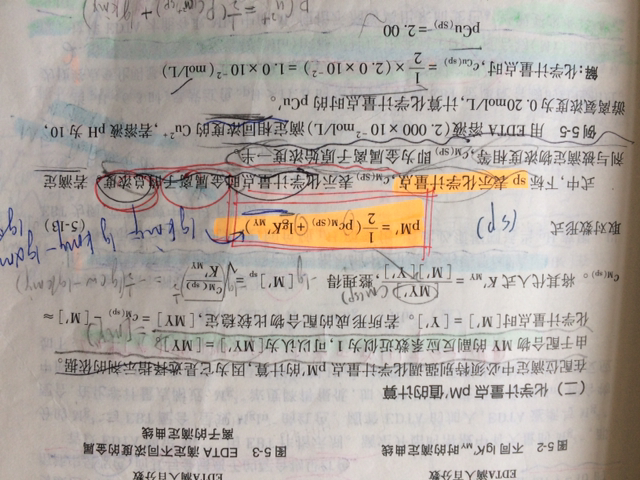 EDTA滴入百分数 EDTA滴入百分数
图5-2 不同lgK'MY时的滴定曲线 图5-3 EDTA滴定不同浓度的金属
离子的滴定曲线
(二)化学计量点pM'值的计算
在配位滴定中必须特别强调化学计量点pM'的计算,因为它是选择指示剂的依据。
由于配合物MY的副反应系数近似为1,可认为[MY']=[MY]。
化学计量点时[M']=[Y']。若所形成的配合物比较稳定,[MY]=cM(sp)-[M']≈
cM(sp)。将其代入式 K'MY=[MY]/[M'][Y'],整理得 [M']sp=√(cM(sp)/K'MY)
取对数形式 pM'=1/2(pcM(sp)+lgK'MY) (5-13)
(sp)
式中,下标sp表示化学计量点,cM(sp)表示化学计量点时金属离子的总浓度。若滴定
剂与被滴定物浓度相等,cM(sp)即为金属离子原始浓度一半。
例5-5 用EDTA溶液(2.000×10⁻²mol/L)滴定相同浓度的Cu²⁺,若溶液pH为10,
游离氨浓度为0.20mol/L,计算化学计量点时的pCu'。
解:化学计量点时,cCu(sp)=1/2×(2.0×10⁻²)=1.0×10⁻²(mol/L)
pCu(sp)=2.00